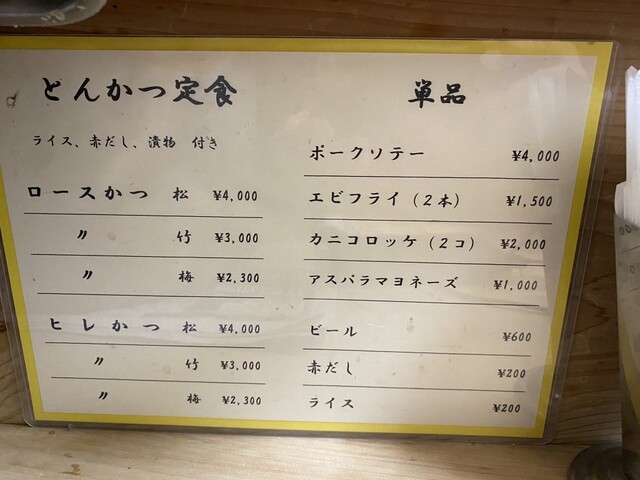 とんかつ定食
ライス、赤だし、漬物 付き
ロースかつ 松 ¥4,000
〃 竹 ¥3,000
〃 梅 ¥2,300
ヒレかつ 松 ¥4,000
〃 竹 ¥3,000
〃 梅 ¥2,300
単品
ポークソテー ¥4,000
エビフライ（２本） ¥1,500
カニコロッケ（２コ） ¥2,000
アスパラマヨネーズ ¥1,000
ビール ¥600
赤だし ¥200
ライス ¥200